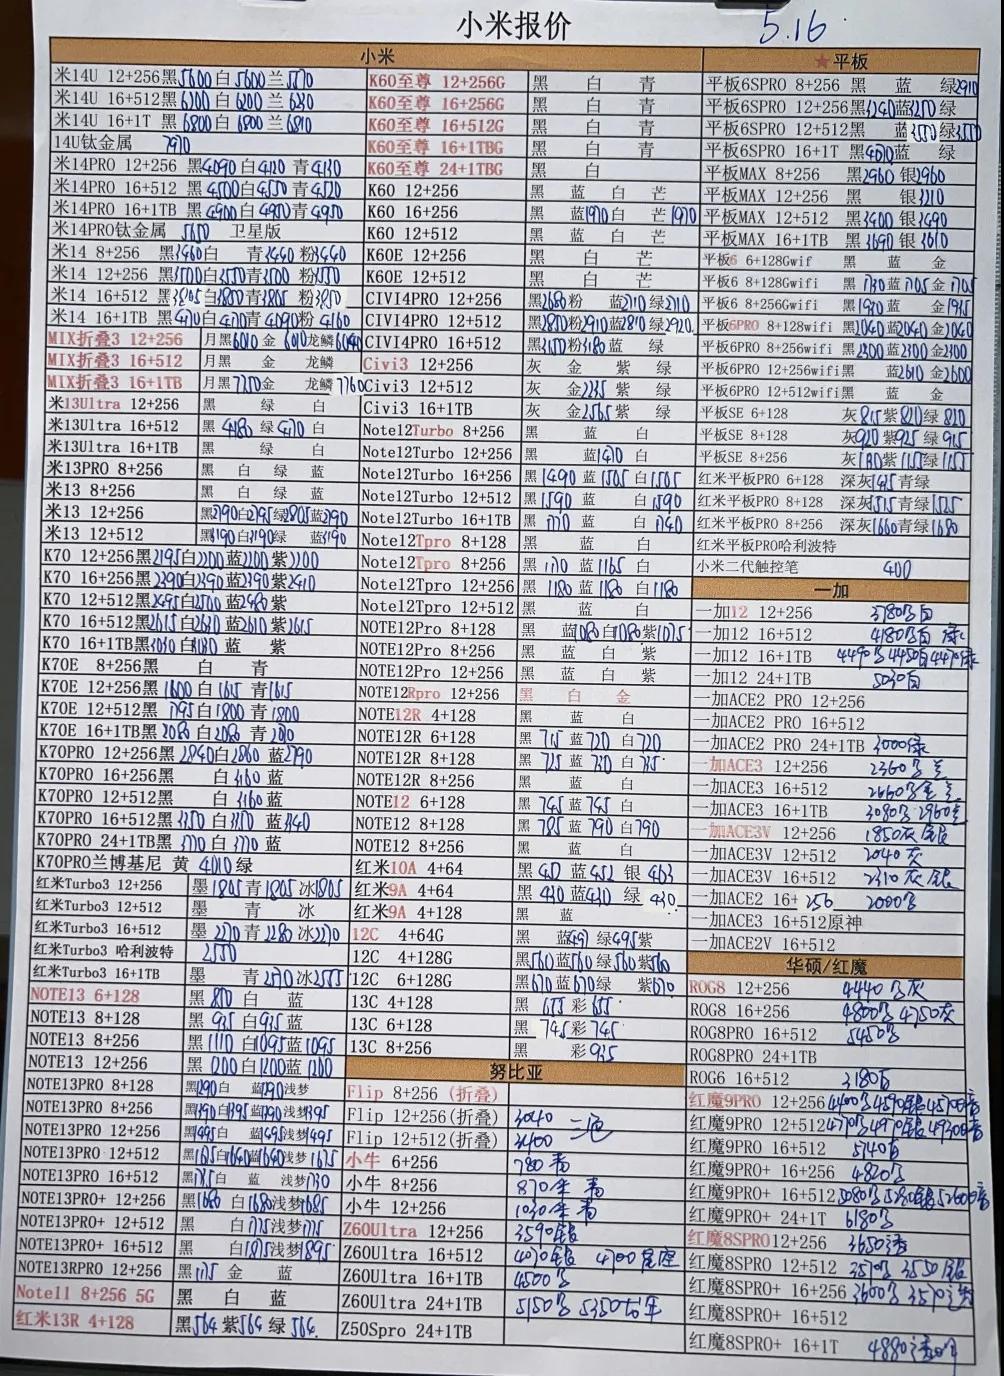 小米报价 5.16
小米
米14U 12+256黑5600白5600兰5570
米14U 16+512黑6200白6200兰6230
米14U 16+1T 黑6800白6800兰6810
14U钛金属 7970
米14PRO 12+256 黑4090白4120 青4130
米14PRO 16+512 黑4500白4550 青4520
米14PRO 16+1TB 黑4900白4950青4950
米14PRO钛金属 5650 卫星版
米14 8+256 黑3460白 青3440粉3440
米14 12+256 黑3500白3550青3500 粉3550
米14 16+512 黑3805白3850青3805 粉3850
米14 16+1TB 黑4170白4170青4090粉4160
MIX折叠3 12+256 月黑6010金 6010龙鳞6040
MIX折叠3 16+512 月黑 金 龙鳞
MIX折叠3 16+1TB 月黑7750金 龙鳞7760
米13Ultra 12+256 黑 绿 白
米13Ultra 16+512 黑 4180 绿4170 白
米13Ultra 16+1TB 黑 绿 白
米13PRO 8+256 黑 白 绿 蓝
米13 8+256 黑 白 绿 蓝
米13 12+256 黑2790白2795绿2805蓝2790
米13 12+512 黑3190白3190绿 蓝3190
K70 12+256黑2195白2200蓝2200紫2200
K70 16+256黑2390白2390蓝2390紫2410
K70 12+512黑2495白2500蓝2480紫
K70 16+512黑2615白2610蓝2610紫2615
K70 16+1TB黑3030白3030蓝 紫
K70E 8+256黑 白 青
K70E 12+256黑1600白1615 青1615
K70E 12+512黑1795白1800 青1800
K70E 16+1TB黑2080白2080 青2070
K70PRO 12+256黑2840白2860 蓝2790
K70PRO 16+256黑 白3160蓝
K70PRO 12+512黑 白3160蓝
K70PRO 16+512黑3350白3350 蓝3340
K70PRO 24+1TB黑3770白3770 蓝
K70PRO兰博基尼 黄 4010绿
红米Turbo3 12+256 墨1805青1805冰1805
红米Turbo3 12+512 墨 青 冰
红米Turbo3 16+512 墨 2270青2280冰2270
红米Turbo3 哈利波特 2550
红米Turbo3 16+1TB 墨 青2570冰2555
NOTE13 6+128 黑 870 白 蓝
NOTE13 8+128 黑 935白935蓝
NOTE13 8+256 黑1110 白1095蓝1095
NOTE13 12+256 黑1200白1200蓝1200
NOTE13PRO 8+128 黑1290白 蓝1290浅梦
NOTE13PRO 8+256 黑1390白1395蓝1390浅梦1395
NOTE13PRO 12+256 黑1495白 蓝1495浅梦1495
NOTE13PRO 12+512 黑1675白1640蓝1640浅梦1675
NOTE13PRO 16+512 黑1735白 蓝 浅梦1730
NOTE13PRO+ 12+256 黑1680白1680浅梦1685
NOTE13PRO+ 12+512 黑 白1775浅梦1775
NOTE13PRO+ 16+512 黑 白1875浅梦1895
NOTE13RPRO 12+256 黑1175金 蓝
Note11 8+256 5G 黑 白 蓝
红米13R 4+128 黑564紫564绿564
K60至尊 12+256G 黑 白 青
K60至尊 16+256G 黑 白 青
K60至尊 16+512G 黑 白 青
K60至尊 16+1TBG 黑 白 青
K60至尊 24+1TBG 黑 白
K60 12+256 黑 蓝 白 芒
K60 16+256 黑 蓝1970白 芒1970
K60 12+512 黑 蓝 白 芒
K60E 12+256 黑 白 芒
K60E 12+512 黑 白 芒
CIVI4PRO 12+256 黑2680粉 蓝2710绿2710
CIVI4PRO 12+512 黑2870粉2910蓝2810绿2920
CIVI4PRO 16+512 黑3150粉3180蓝 绿
Civi3 12+256 灰 金 紫 绿
Civi3 12+512 灰 金2235紫 绿
Civi3 16+1TB 灰 金2565紫 绿
Note12Turbo 8+256 黑 蓝 白
Note12Turbo 12+256 黑 蓝1470白
Note12Turbo 16+256 黑1490 蓝1505 白1505
Note12Turbo 12+512 黑1590 蓝 白1590
Note12Turbo 16+1TB 黑1770 蓝 白1740
Note12Tpro 8+128 黑 蓝 白
Note12Tpro 8+256 黑1170 蓝1165 白
Note12Tpro 12+256 黑1180蓝1180 白1180
Note12Tpro 12+512 黑 蓝 白
NOTE12Pro 8+128 黑 蓝1080白1080紫1075
NOTE12Pro 8+256 黑 蓝 白 紫
NOTE12Pro 12+256 黑 蓝 白 紫
NOTE12Rpro 12+256 黑 白 金
NOTE12R 4+128 黑 蓝 白
NOTE12R 6+128 黑 715 蓝720 白720
NOTE12R 8+128 黑 725 蓝730 白735
NOTE12R 8+256 黑 蓝 白
NOTE12 6+128 黑745蓝745 白
NOTE12 8+128 黑785蓝790白790
NOTE12 8+256 黑 蓝 白
红米10A 4+64 黑450蓝452 银463
红米9A 4+64 黑430蓝430 绿 430
红米9A 4+128 黑 蓝
12C 4+64G 黑 蓝491绿495紫
12C 4+128G 黑560蓝560绿560紫560
12C 6+128G 黑670蓝670绿 紫670
13C 4+128 黑 655彩655
13C 6+128 黑 745彩745
13C 8+256 黑 彩935
努比亚
Flip 8+256 (折叠)
Flip 12+256(折叠) 3040
Flip 12+512(折叠) 3400 二色
小牛 6+256 780青
小牛 8+256 870 青
小牛 12+256 1030 青
Z60Ultra 12+256 3590银
Z60Ultra 16+512 4070银 4700星空
Z60Ultra 16+1TB 4500
Z60Ultra 24+1TB 5150 5350
Z50Spro 24+1TB
★平板
平板6SPRO 8+256 黑 蓝 绿2910
平板6SPRO 12+256黑3240蓝3250绿
平板6SPRO 12+512黑 蓝3550绿3550
平板6SPRO 16+1T 黑4070蓝 绿
平板MAX 8+256 黑2960 银2960
平板MAX 12+256 黑 银3210
平板MAX 12+512 黑3400银3490
平板MAX 16+1TB 黑3690银3610
平板6 6+128Gwif 黑 蓝 金
平板6 8+128Gwifi 黑1730蓝1705金1705
平板6 8+256Gwifi 黑1920蓝 金1915
平板6PRO 8+128wifi 黑2040蓝2040金2040
平板6PRO 8+256wifi 黑2300蓝2300金2300
平板6PRO 12+256wifi黑 蓝2610金2600
平板6PRO 12+512wifi黑 蓝 金
平板SE 6+128 灰815紫820绿820
平板SE 8+128 灰920紫925绿915
平板SE 8+256 灰1130紫1155绿1155
红米平板PRO 6+128 深灰1425青绿
红米平板PRO 8+128 深灰1515青绿1525
红米平板PRO 8+256 深灰1660青绿1680
红米平板PRO哈利波特
小米二代触控笔 400
一加
一加12 12+256 3780 白
一加12 16+512 4180 白 绿
一加12 16+1TB 4490 4450白4470绿
一加12 24+1TB 5030白
一加ACE2 PRO 12+256
一加ACE2 PRO 16+512
一加ACE2 PRO 24+1TB 3000绿
一加ACE3 12+256 2360
一加ACE3 16+512 2660
一加ACE3 16+1TB 3080 2960
一加ACE3V 12+256 1850灰 银
一加ACE3V 12+512 2040灰
一加ACE3V 16+512 2310灰 银
一加ACE2 16+ 256 2000
一加ACE3 16+512原神
一加ACE2V 16+512
华硕/红魔
ROG8 12+256 4440 灰
ROG8 16+256 4800 4750灰
ROG8PRO 16+512 5450
ROG8PRO 24+1TB
ROG6 16+512 3180白
红魔9PRO 12+256 4400 4590银4570
红魔9PRO 12+512 4770 4970银4930
红魔9PRO 16+512 5140
红魔9PRO+ 16+256 4820
红魔9PRO+ 16+512 5080 5280银5260
红魔9PRO+ 24+1T 6180
红魔8SPRO12+256 3650透
红魔8SPRO 12+512 3570 3550银
红魔8SPRO+ 16+256 3600 3570透
红魔8SPRO+ 16+512
红魔8SPRO+ 16+1T 4880透明